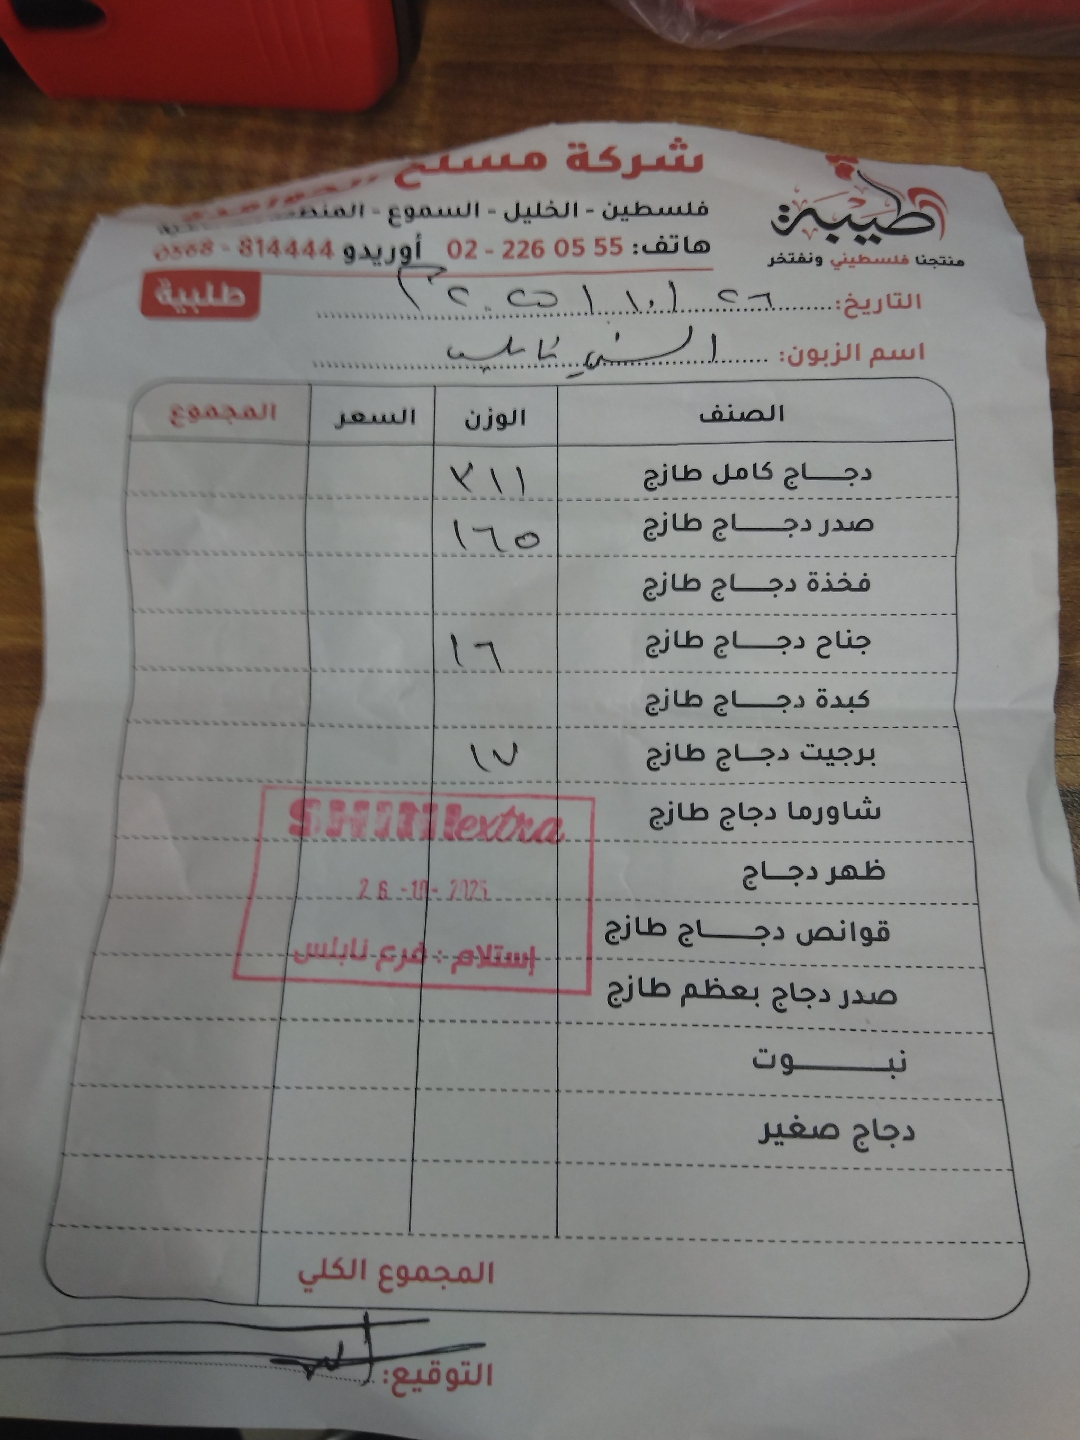 شركة مسلخ
طيبة
فلسطين - الخليل - السموع -
منتجنا فلسطيني ونفتخر
هاتف: 02 - 226 05 55 أوريدو 0568 - 814444
طلبية
التاريخ: ٢٦ / ١٠ / ٢٠٢٥ م
اسم الزبون: الشني نابلس
الصنف الوزن السعر المجموع
دجاج كامل طازج ٣١١
صدر دجاج طازج ١٦٥
فخذة دجاج طازج
جناح دجاج طازج ١٦
كبدة دجاج طازج
برجيت دجاج طازج ١٧
شاورما دجاج طازج
SHINI extra
ظهر دجاج
26 -10- 2025
قوانص دجاج طازج
إستلام : فرع نابلس
صدر دجاج بعظم طازج
نبوت
دجاج صغير
المجموع الكلي
التوقيع: